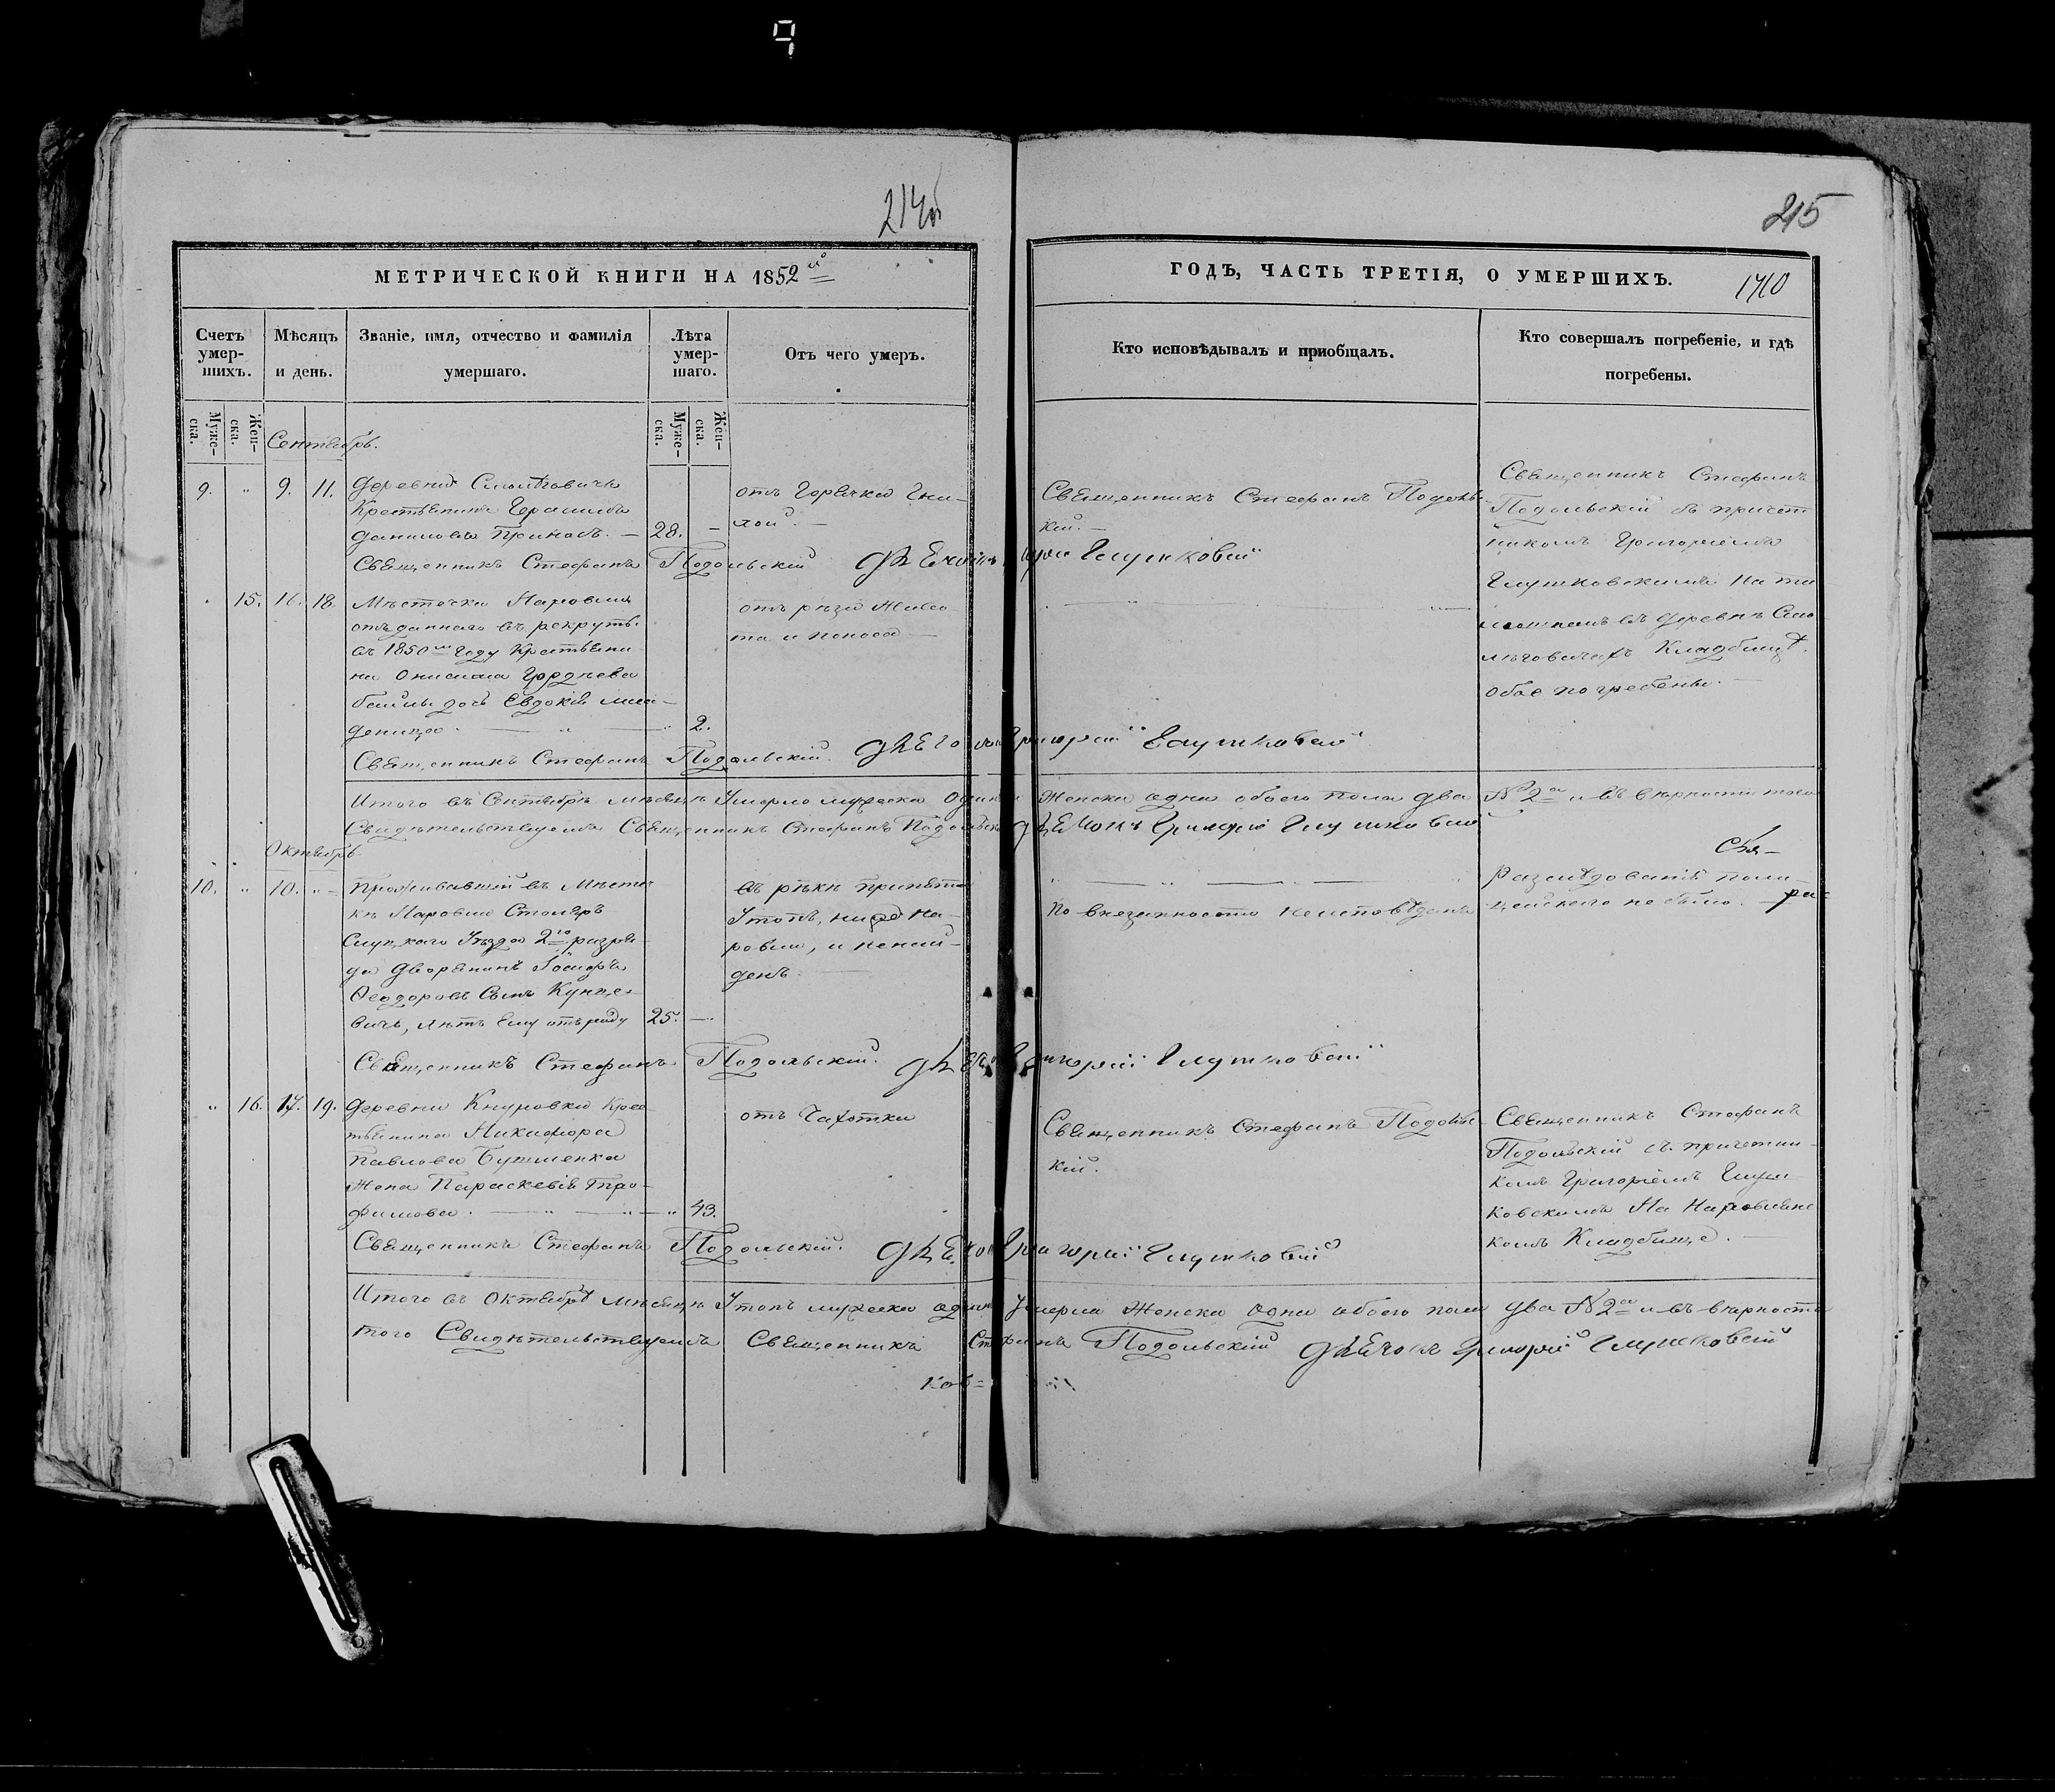 9
214об
215
МЕТРИЧЕСКОЙ КНИГИ НА 1852й
ГОДЪ, ЧАСТЬ ТРЕТІЯ, О УМЕРШИХЪ.
1710
Счетъ умер-
шихъ.
Мѣсяцъ
и день.
Званіе, имя, отчество и фамилія
умершаго.
Лѣта
умер-
шаго.
Отъ чего умеръ.
Кто исповѣдывалъ и пріобщалъ.
Кто совершалъ погребеніе, и гдѣ
погребены.
Муже-
ска.
Жен-
ска.
Муже-
ска.
Жен-
ска.
Сентябрь.
9. " 9. 11. Деревни
Крестьянинъ Герасимъ
Даниловъ 28. –
отъ Горячки Гни-
лой. –
Священникъ Стефанъ Подоль-
кій. –
Священникъ Стефанъ
Подольскій съ причет
никомъ Григоріемъ
Глушковскимъ На
въ деревнѣ
Кладбищѣ.
Обое погребены. –
Священникъ Стефанъ Подольскій Дьячокъ Глушковскій
15. 16. 18. Мѣстечка Наровли
отъданнаго въ рекруты.
въ 1850м Году Крестьяни-
на Онисима Гордѣева
дочь Евдокія мла-
деница. – " – 2.
отъ рѣзи Живо
та и поноса –
Священникъ Стефанъ Подольскій. Дьячокъ Григорій Глушковскій
Итого въ Сентябрѣ мѣсяцѣ Умерло мужеска одинъ Женска одна обоего пола два №2а и въ вѣрности того
Свидѣтельствуемъ Священникъ Стефанъ Подольскій Дьячокъ Григорій Глушковскій
Октябрь
10. " 10. " – Проживавшій въ Мѣстеч
кѣ Наровли Столяръ
Слуцкаго Уѣзда 2го разря-
да Дворянинъ Іосифъ
Ѳеодоровъ Сынъ Кунце-
вичъ, лѣтъ Ему отъ роду 25. –
въ рѣкѣ Припяти
Утопъ, ниже На-
ровли, и ненай-
денъ
По внезапности неисповѣданъ
Разслѣдованія поли-
цейскаго не было. –
Священникъ Стефанъ Подольскій. Дьячокъ Григорій Глушковскій
" 16. 17. 19. Деревни Кнуровки Крес
тьянина Никифора
Павлова Бушленка
Жена Параскевія Тро-
фимова. – " – " – " 43.
отъ Чахотки
Священникъ Стефанъ Подоль-
кій.
Священникъ Стефанъ
Подольскій съ причетни-
комъ Григоріемъ Глуш
ковскимъ На Наровлянс
комъ Кладбищѣ. –
Священникъ Стефанъ Подольскій. Дьячокъ Григорій Глушковскій
Итого въ Октябрѣ мѣсяцѣ Утопъ мужеска одинъ Умерла Женска одна обоего пола два №2а и въ вѣрности
того Свидѣтельствуемъ Священникъ Стефанъ Подольскій Дьячокъ Григорій Глушковскій